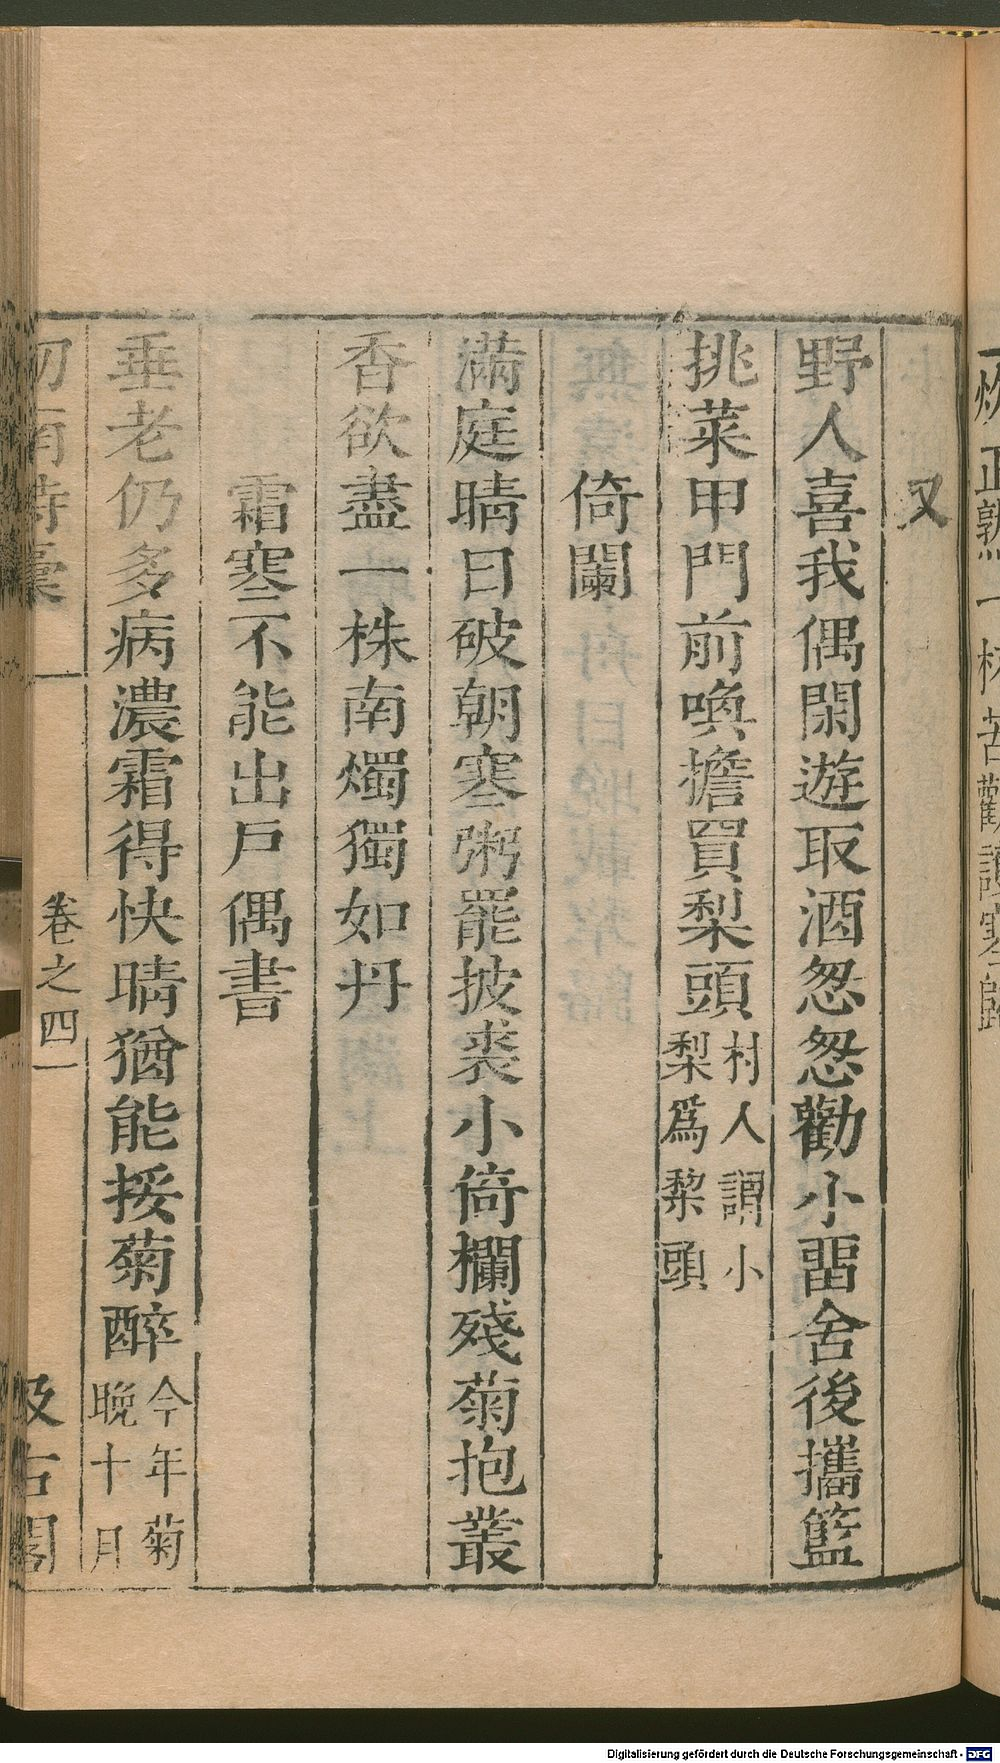 又
野人喜我偶閑遊取酒怱怱勸小畱舍後攜籃
挑菜甲門前喚擔買梨頭村人謂小
梨爲棃頭
倚闌
滿庭晴日破朝寒粥罷披裘小倚欄殘菊抱叢
香欲盡一株南燭獨如丹
霜寒不能出戸偶書
垂老仍多病濃霜得快晴猶能挼菊醉今年菊
晩十月
卷之四一
汲古閣
Digitalisierung gefördert durch die Deutsche Forschungsgemeinschaft - DFG